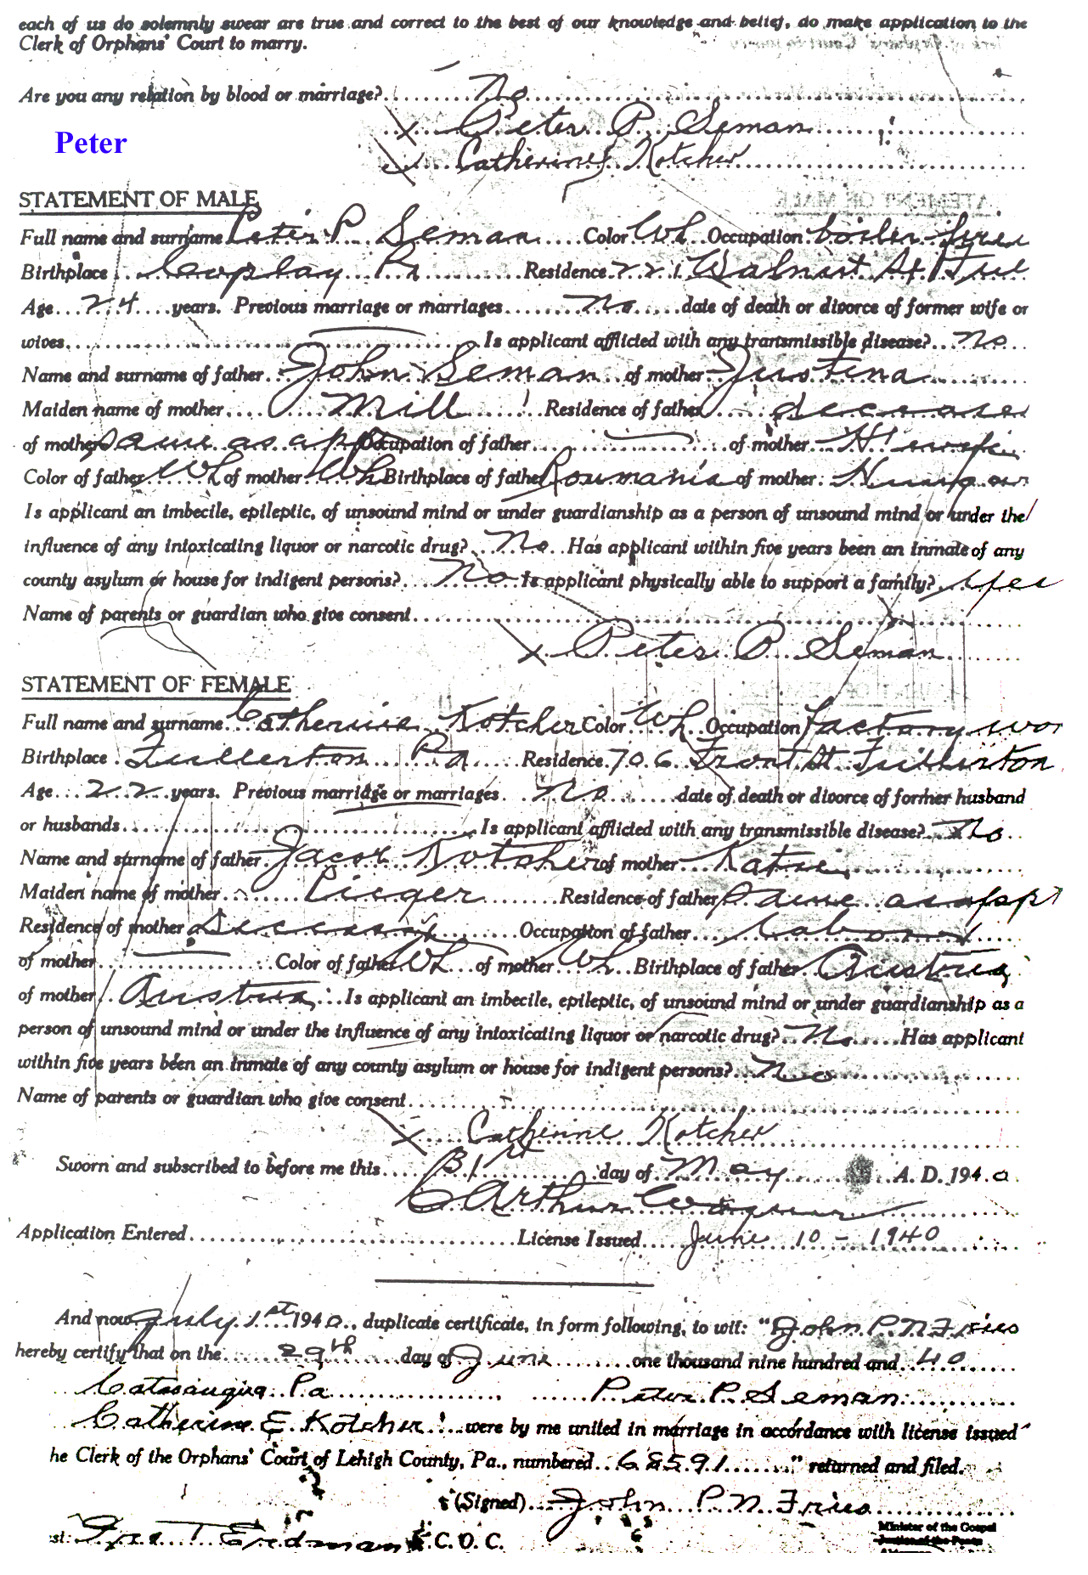 each of us do solemnly swear are true and correct to the best of our knowledge and belief, do make application to the
Clerk of Orphans' Court to marry.
Are you any relation by blood or marriage? No
X Peter P. Seman
Peter
X Catherine Kotcher
STATEMENT OF MALE
Full name and surname Peter P. Seman Color Wh Occupation boiler
Birthplace Coplay Pa Residence 221 Walnut St Ful
Age 24 years. Previous marriage or marriages No date of death or divorce of former wife or
wives Is applicant afflicted with any transmissible disease? No
Name and surname of father John Seman of mother Justina
Maiden name of mother Mill Residence of father deceased
of mother same as app Occupation of father of mother H'wife
Color of father Wh of mother Wh Birthplace of father Roumania of mother Hungar
Is applicant an imbecile, epileptic, of unsound mind or under guardianship as a person of unsound mind or under the
influence of any intoxicating liquor or narcotic drug? No Has applicant within five years been an inmate of any
county asylum or house for indigent persons? No Is applicant physically able to support a family? yes
Name of parents or guardian who give consent
X Peter P. Seman
STATEMENT OF FEMALE
Full name and surname Catherine Kotcher Color Wh Occupation factory wor
Birthplace Fullerton Pa Residence 706 Front St Fullerton
Age 22 years. Previous marriage or marriages No date of death or divorce of former husband
or husbands Is applicant afflicted with any transmissible disease? No
Name and surname of father Jacob Kotcher of mother Katie
Maiden name of mother Residence of father Same as app
Residence of mother Occupation of father Laborer
of mother Color of father Wh of mother Wh Birthplace of father Austria
of mother Austria Is applicant an imbecile, epileptic, of unsound mind or under guardianship as a
person of unsound mind or under the influence of any intoxicating liquor or narcotic drug? No Has applicant
within five years been an inmate of any county asylum or house for indigent persons? No
Name of parents or guardian who give consent
X Catherine Kotcher
Sworn and subscribed to before me this 31st day of May A. D. 1940
Arthur
Application Entered License Issued June 10 - 1940
And now July 1st 1940, duplicate certificate, in form following, to wit: "I John P. N.
hereby certify that on the 29th day of June one thousand nine hundred and 40
Catasauqua Pa Peter P. Seman
Catherine E Kotcher were by me united in marriage in accordance with license issued
he Clerk of the Orphans' Court of Lehigh County, Pa., numbered 68591 " returned and filed.
(Signed) John P. N.
st: T. Erdman C. O. C.
Minister of the Gospel
Justice of the Peace
Alderman